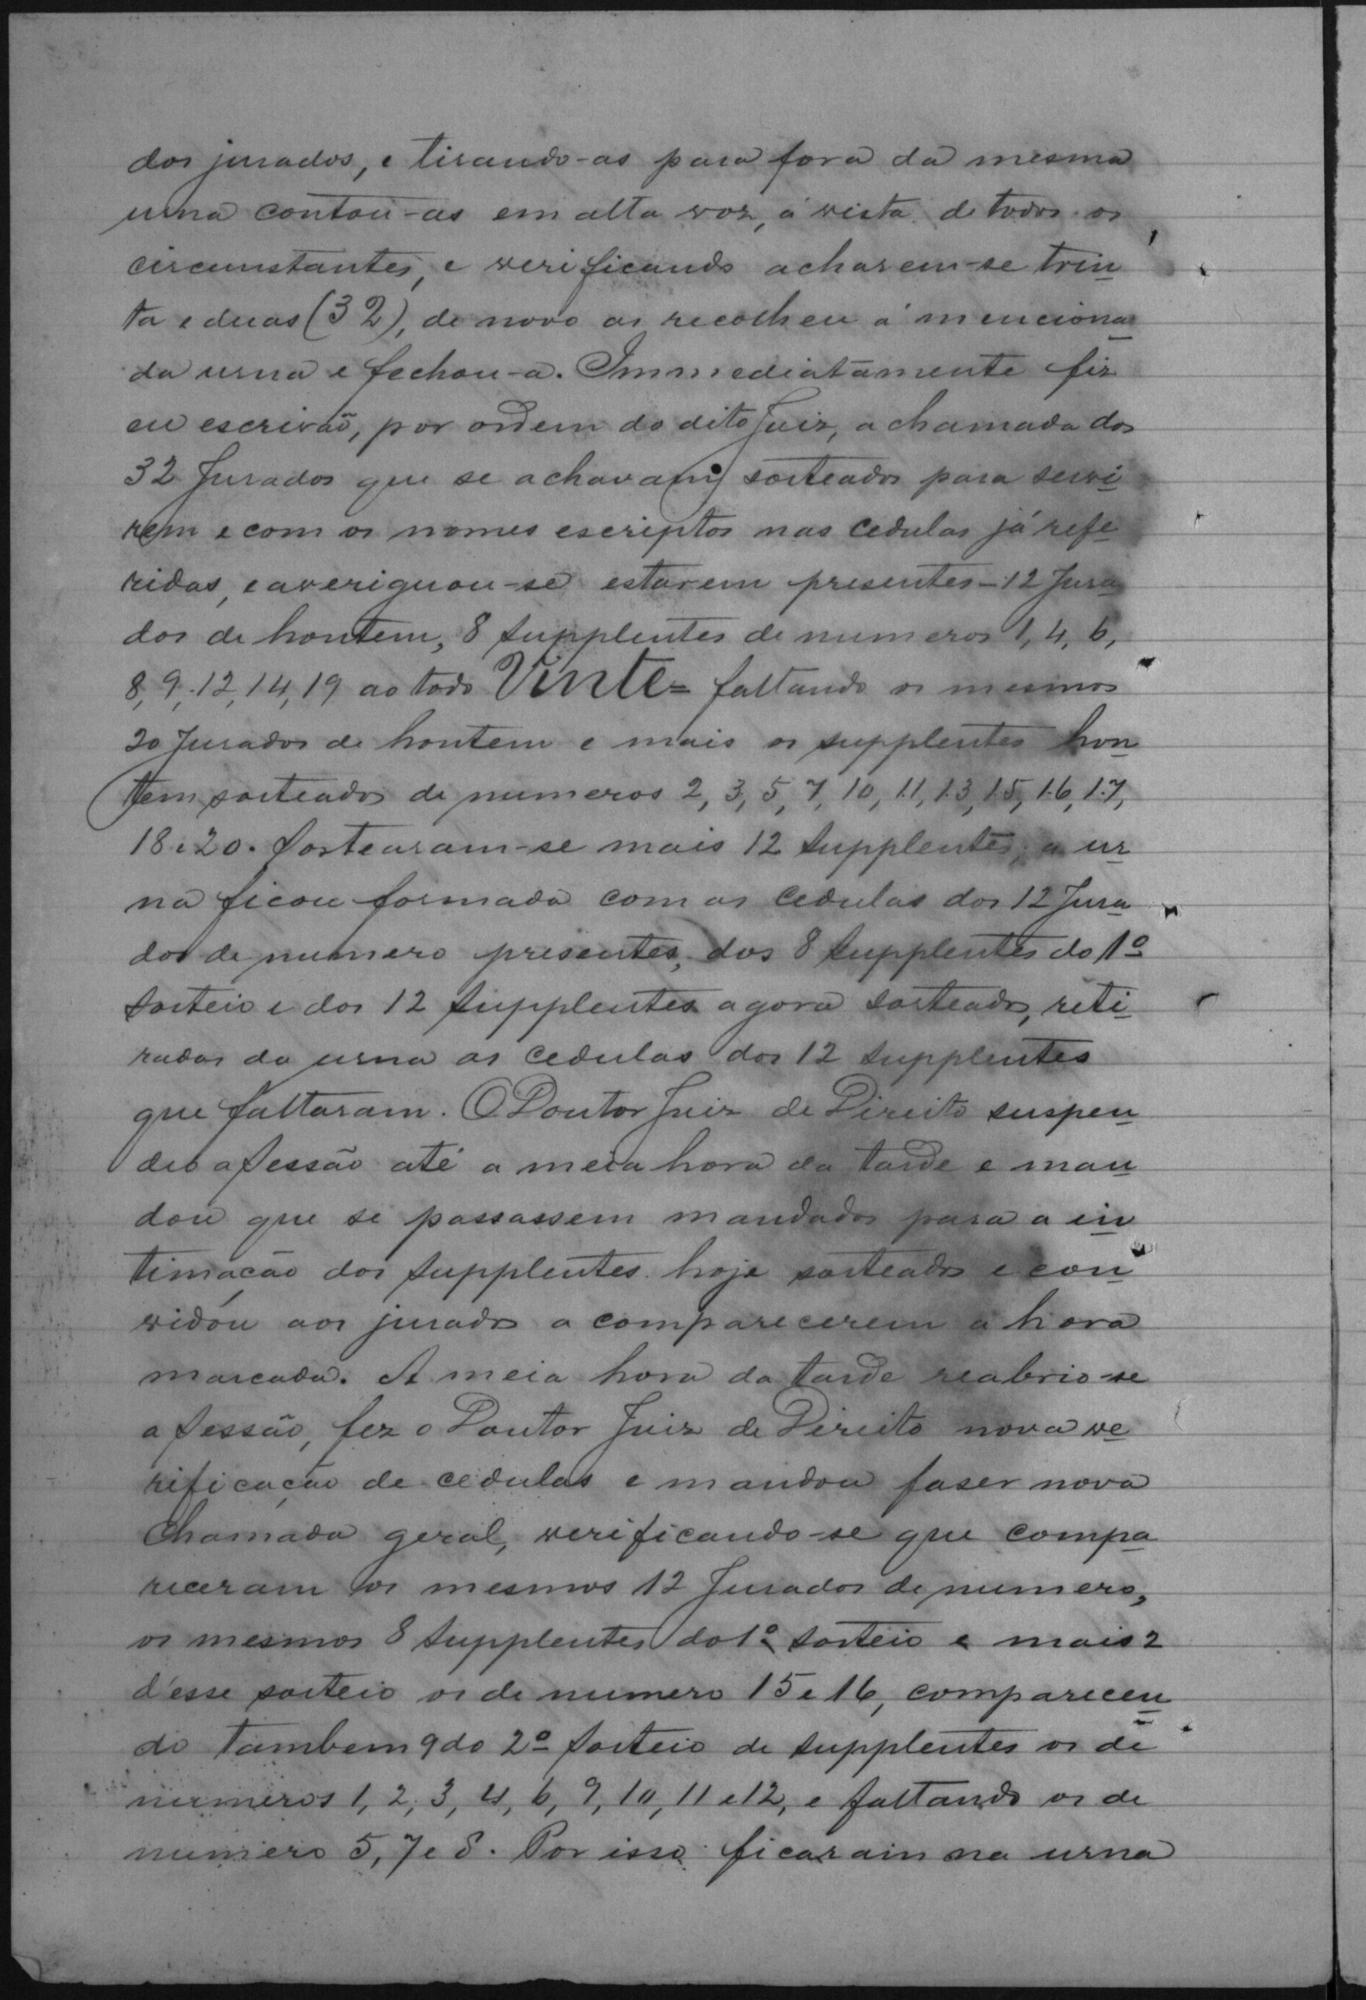 dos jurados, e tirando-as para fora da mesma
urna contou-as em alta voz, á vista de todos os
circumstantes, e verificando acharem-se trin
ta e duas (32), de novo as recolheu á menciona
da urna e fechou-a. Immediatamente fiz
eu escrivão, por ordem do dito Juiz, a chamada dos
32 Jurados que se achavam sorteados para servi
rem e com os nomes escriptos nas cedulas já refe
ridas, e averiguou-se estarem presentes - 12 Jura
dos de hontem, 8 supplentes de numeros 1, 4, 6,
8, 9, 12, 14, 19 ao todo Vinte = faltando os mesmos
20 Jurados de hontem e mais os supplentes hon
tem sorteados de numeros 2, 3, 5, 7, 10, 11, 13, 15, 16, 17,
18 e 20. Sortearam-se mais 12 supplentes, a ur
na ficou formada com as cedulas dos 12 Jura
dos de numero presentes, dos 8 supplentes do 1º
sorteio e dos 12 supplentes agora sorteados, reti
radas da urna as cedulas dos 12 supplentes
que faltaram. O Doutor Juiz de Direito suspen
deo a sessão até a meia hora da tarde e man
dou que se passassem mandados para a in
timação dos supplentes hoje sorteados e con
vidou aos jurados a comparecerem a hora
marcada. A meia hora da tarde reabrio-se
a sessão, fez o Doutor Juiz de Direito nova ve
rificação de cedulas e mandou faser nova
chamada geral, verificando-se que compa
receram os mesmos 12 Jurados de numero,
os mesmos 8 supplentes do 1º sorteio e mais 2
d'esse sorteio os de numero 15 e 16, comparecen
do tambem 9 do 2º sorteio de supplentes os de
numeros 1, 2, 3, 4, 6, 9, 10, 11 e 12, e faltando os de
numero 5, 7 e 8. Por isso ficaram na urna